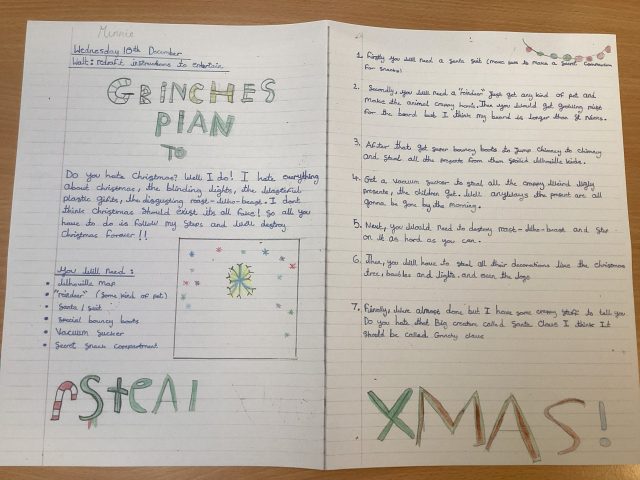 Minnie
Wednesday 18th December
Walt: redraft instructions to entertain
GRINCHES
PlAN
TO
Do you hate Christmas? Well I do! I hate everything
about christmas, the blinding lights, the wasteful
plastic gifts, the disgusting roast-who-beast. I dont
think Christmas should exist its all fake! So all you
have to do is follow my steps and will destroy
Christmas forever!!
You Will need:
whoville map
"raindeer" (some kind of pet)
Santa / suit
special bouncy boots
Vacuum sucker
Secret snack compartment
Steal
1. Firstly you will need a santa suit (make sure to make a Secret Compartment
for snacks)
2. Secondly, you will need a "reindeer" just get any kind of pet and
make the animal creepy horns. Then you would get
for the beard but I think my beard is longer than St nicks.
3. After that get super bouncy boots to jump chimney to chimney
and steal all the presents from them whoville kids.
4. Get a vacuum sucker to steal all the creepy weird ugly
presents, the children get. Well anyways the present are all
gonna be gone by the morning.
5. Next, you would need to destroy roast-who-beast and step
on it as hard as you can.
6. Then, you will have to steal all their decorations like the christmas
tree, baubles and lights. and even the logs
7. Finally, were almost done but I have some creepy stuff to tell you
Do you hate that Big creature called Santa Claus I think it
should be called Grinchy claus
XMAS!